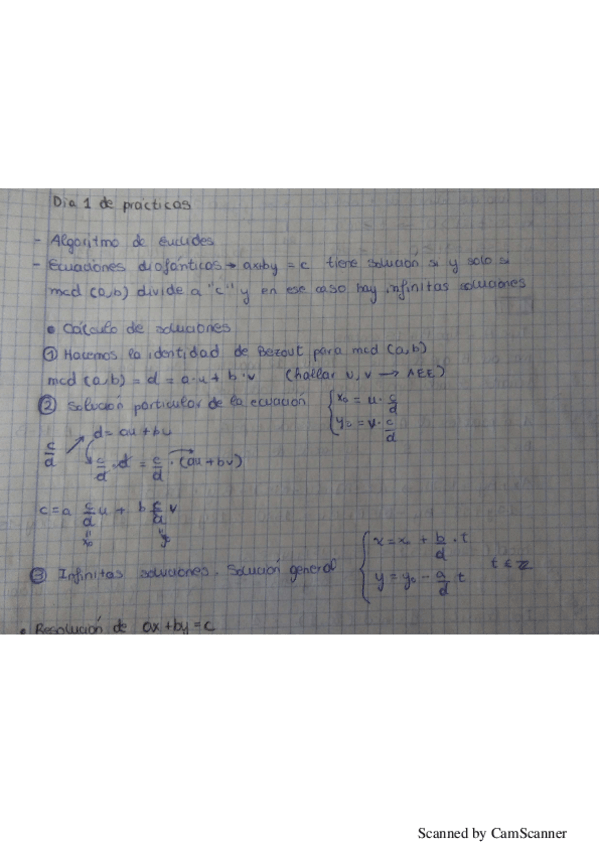 Día 1 de prácticas
- Algoritmo de euclides
- Ecuaciones diofánticas → ax+by = c tiene solución si y solo si
mcd (a,b) divide a "c" y en ese caso hay infinitas soluciones
• Cálculo de soluciones
① Hacemos la identidad de Bezout para mcd (a,b)
mcd (a,b) = d = a·u + b·v (hallar u, v → AEE)
② Solución particular de la ecuación { x₀ = u · c/d
y₀ = v · c/d
d = au + bv
c/d
c/d · d = c/d · (au + bv)
c = a c/d u + b c/d v
x₀ y₀
③ Infinitas soluciones. Solución general { x = x + b/d · t
y = y₀ - a/d t t ∈ Z
• Resolución de ax + by = c
Scanned by CamScanner